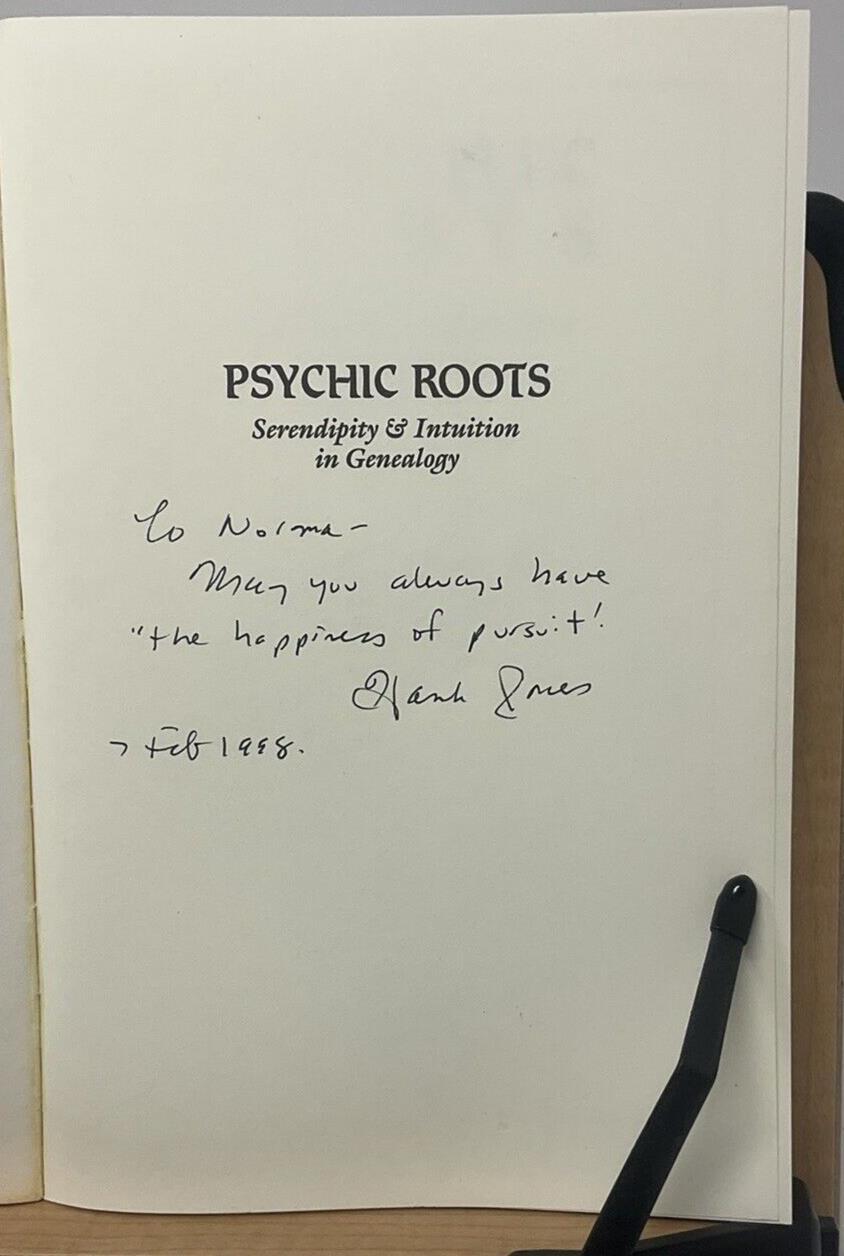 PSYCHIC ROOTS
Serendipity & Intuition
in Genealogy
To Norma-
May you always have
"the happiness of pursuit!
Hank Jones
7 Feb 1998.